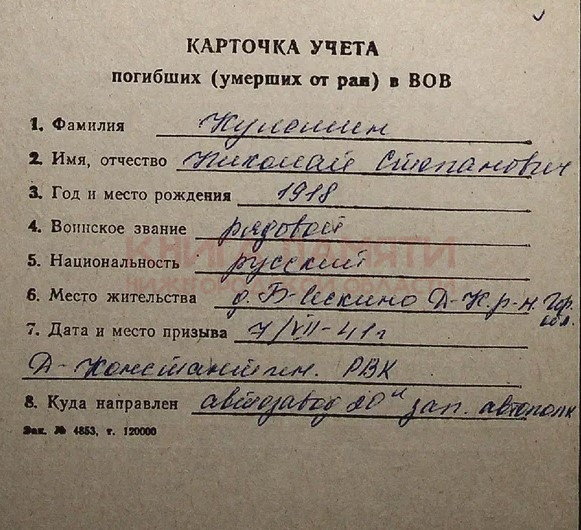 КАРТОЧКА УЧЕТА
погибших (умерших от ран) в ВОВ
1. Фамилия Кулемин
2. Имя, отчество Николай Степанович
3. Год и место рождения 1918
4. Воинское звание рядовой
КНИГА ПАМЯТИ
5. Национальность русский
НИЖЕГОРОДСКОЙ ОБЛАСТИ
6. Место жительства д. Б-Сескино Д-К. р-н. Гор. обл.
7. Дата и место призыва 7/VII-41г
Д-Константин. РВК
8. Куда направлен автозавод 20й зап. автополк
Зак. № 4853, т. 120000